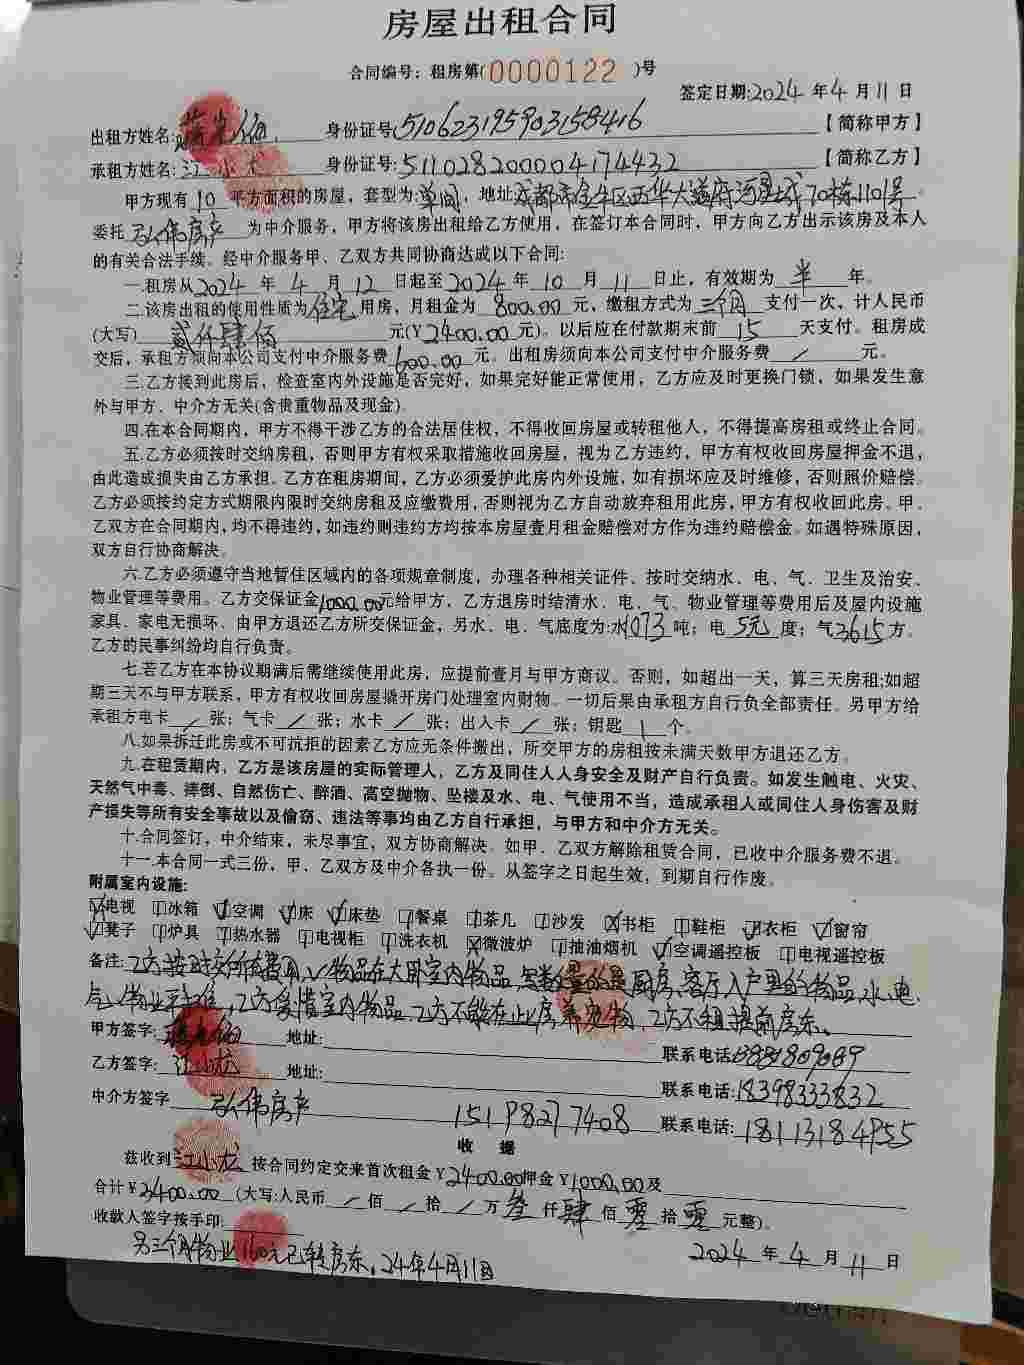 房屋出租合同
合同编号：租房第(0000122)号
签定日期:2024年4月11日
出租方姓名: 身份证号:510623195903158416【简称甲方】
承租方姓名:江小龙 身份证号:511028200004174432【简称乙方】
甲方现有10平方面积的房屋，套型为:单间，地址:成都市金牛区西华大道府河星城70栋1101号
委托弘伟房产为中介服务，甲方将该房出租给乙方使用，在签订本合同时，甲方向乙方出示该房及本人
的有关合法手续。经中介服务甲、乙双方共同协商达成以下合同:
一.租房从2024年4月12日起至2024年10月11日止，有效期为半年。
二.该房出租的使用性质为住宅用房，月租金为800.00元，缴租方式为三个月支付一次，计人民币
(大写)贰仟肆佰元(￥2400.00元)。以后应在付款期末前15天支付。租房成
交后，承租方须向本公司支付中介服务费600.00元。出租房须向本公司支付中介服务费/元。
三.乙方接到此房后，检查室内外设施是否完好，如果完好能正常使用，乙方应及时更换门锁，如果发生意
外与甲方、中介方无关(含贵重物品及现金)。
四.在本合同期内，甲方不得干涉乙方的合法居住权，不得收回房屋或转租他人，不得提高房租或终止合同。
五.乙方必须按时交纳房租，否则甲方有权采取措施收回房屋，视为乙方违约，甲方有权收回房屋押金不退，
由此造成损失由乙方承担。乙方在租房期间，乙方必须爱护此房内外设施，如有损坏应及时维修，否则照价赔偿。
乙方必须按约定方式期限内限时交纳房租及应缴费用，否则视为乙方自动放弃租用此房，甲方有权收回此房。甲、
乙双方在合同期内，均不得违约，如违约则违约方均按本房屋壹月租金赔偿对方作为违约赔偿金。如遇特殊原因，
双方自行协商解决。
六.乙方必须遵守当地暂住区域内的各项规章制度，办理各种相关证件、按时交纳水、电、气、卫生及治安、
物业管理等费用。乙方交保证金1000.00元给甲方，乙方退房时结清水、电、气、物业管理等费用后及屋内设施
家具、家电无损坏、由甲方退还乙方所交保证金，另水、电、气底度为:水1073吨；电5元度；气3615方。
乙方的民事纠纷均自行负责。
七.若乙方在本协议期满后需继续使用此房，应提前壹月与甲方商议。否则，如超出一天，算三天房租;如超
期三天不与甲方联系，甲方有权收回房屋撬开房门处理室内财物。一切后果由承租方自行负全部责任。另甲方给
承租方电卡/张；气卡/张；水卡/张；出入卡/张；钥匙1个。
八.如果拆迁此房或不可抗拒的因素乙方应无条件搬出，所交甲方的房租按未满天数甲方退还乙方。
九.在租赁期内，乙方是该房屋的实际管理人，乙方及同住人人身安全及财产自行负责。如发生触电、火灾、
天然气中毒、摔倒、自然伤亡、醉酒、高空抛物、坠楼及水、电、气使用不当，造成承租人或同住人身伤害及财
产损失等所有安全事故以及偷窃、违法等事均由乙方自行承担，与甲方和中介方无关。
十.合同签订，中介结束，未尽事宜，双方协商解决。如甲、乙双方解除租赁合同，已收中介服务费不退。
十一.本合同一式三份，甲、乙双方及中介各执一份。从签字之日起生效，到期自行作废。
附属室内设施:
电视 冰箱 空调 床 床垫 餐桌 茶几 沙发 书柜 鞋柜 衣柜 窗帘
凳子 炉具 热水器 电视柜 洗衣机 微波炉 抽油烟机 空调遥控板 电视遥控板
备注:乙方按时交所有费用，物品在大卧室内物品，厨房、客厅入户里的物品，水、电、
气、物业，乙方爱惜室内物品，乙方不能在此房养宠物，乙方不租提前房东。
甲方签字: 地址: 联系电话:
乙方签字:江小龙 地址: 联系电话:18398333832
中介方签字 弘伟房产 15198277408 联系电话:18113184955
收 据
兹收到江小龙按合同约定交来首次租金￥2400.00押金￥1000.00及
合计￥3400.00(大写:人民币/佰/拾/万叁仟肆佰零拾零元整)。
收款人签字按手印:
2024年4月11日
另三个月物业160元已转房东，24年4月11日